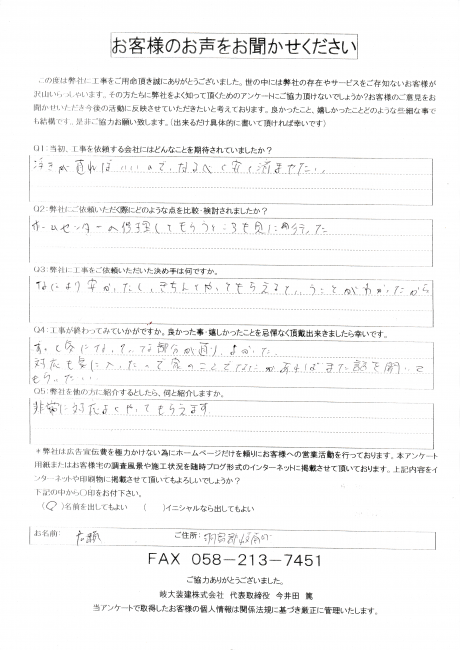 お客様のお声をお聞かせください
この度は弊社に工事をご用命頂き誠にありがとうございました。世の中には弊社の存在やサービスをご存知ないお客様が
沢山いらっしゃいます。その方たちに弊社をよく知って頂くためのアンケートにご協力頂けないでしょうか?お客様のご意見をお
聞かせいただき今後の活動に反映させていただきたいと考えております。良かったこと、嬉しかったことどのような些細な事で
も結構です。是非ご協力お願い致します。(出来るだけ具体的に書いて頂ければ幸いです)
Q1:当初、工事を依頼する会社にはどんなことを期待されていましたか?
浮きが直ればいいので、なるべく安く済ませたい。
Q2:弊社にご依頼いただく際にどのような点を比較・検討されましたか?
ホームセンターの修理してもらうところも見に行った
Q3:弊社に工事をご依頼いただいた決め手は何ですか。
なにより安かったし、きちんとやってもらえるということがわかったから
Q4:工事が終わってみていかがですか。良かった事・嬉しかったことを忌憚なく頂戴出来ましたら幸いです。
気になっていてる部分が直り、よかった。
対応も気に入ったので家のことでなにかあればまた話を聞いて
もらいたい
Q5:弊社を他の方に紹介するとしたら、何と紹介しますか。
非常に対応よくやってもらえます
+弊社は広告宣伝費を極力かけない為にホームページだけを頼りにお客様への営業活動を行っております。本アンケート
用紙またはお客様宅の調査風景や施工状況を随時ブログ形式のインターネットに掲載させて頂いております。上記内容をイ
ンターネットや印刷物に掲載させて頂いてもよろしいでしょうか?
下記の中から〇印をお付下さい。
(〇)名前を出してもよい ( )イニシャルなら出してもよい
お名前: ご住所:
FAX 058-213-7451
ご協力ありがとうございました。
岐大装建株式会社 代表取締役 今井田 篤
当アンケートで取得したお客様の個人情報は関係法規に基づき厳正に管理いたします。